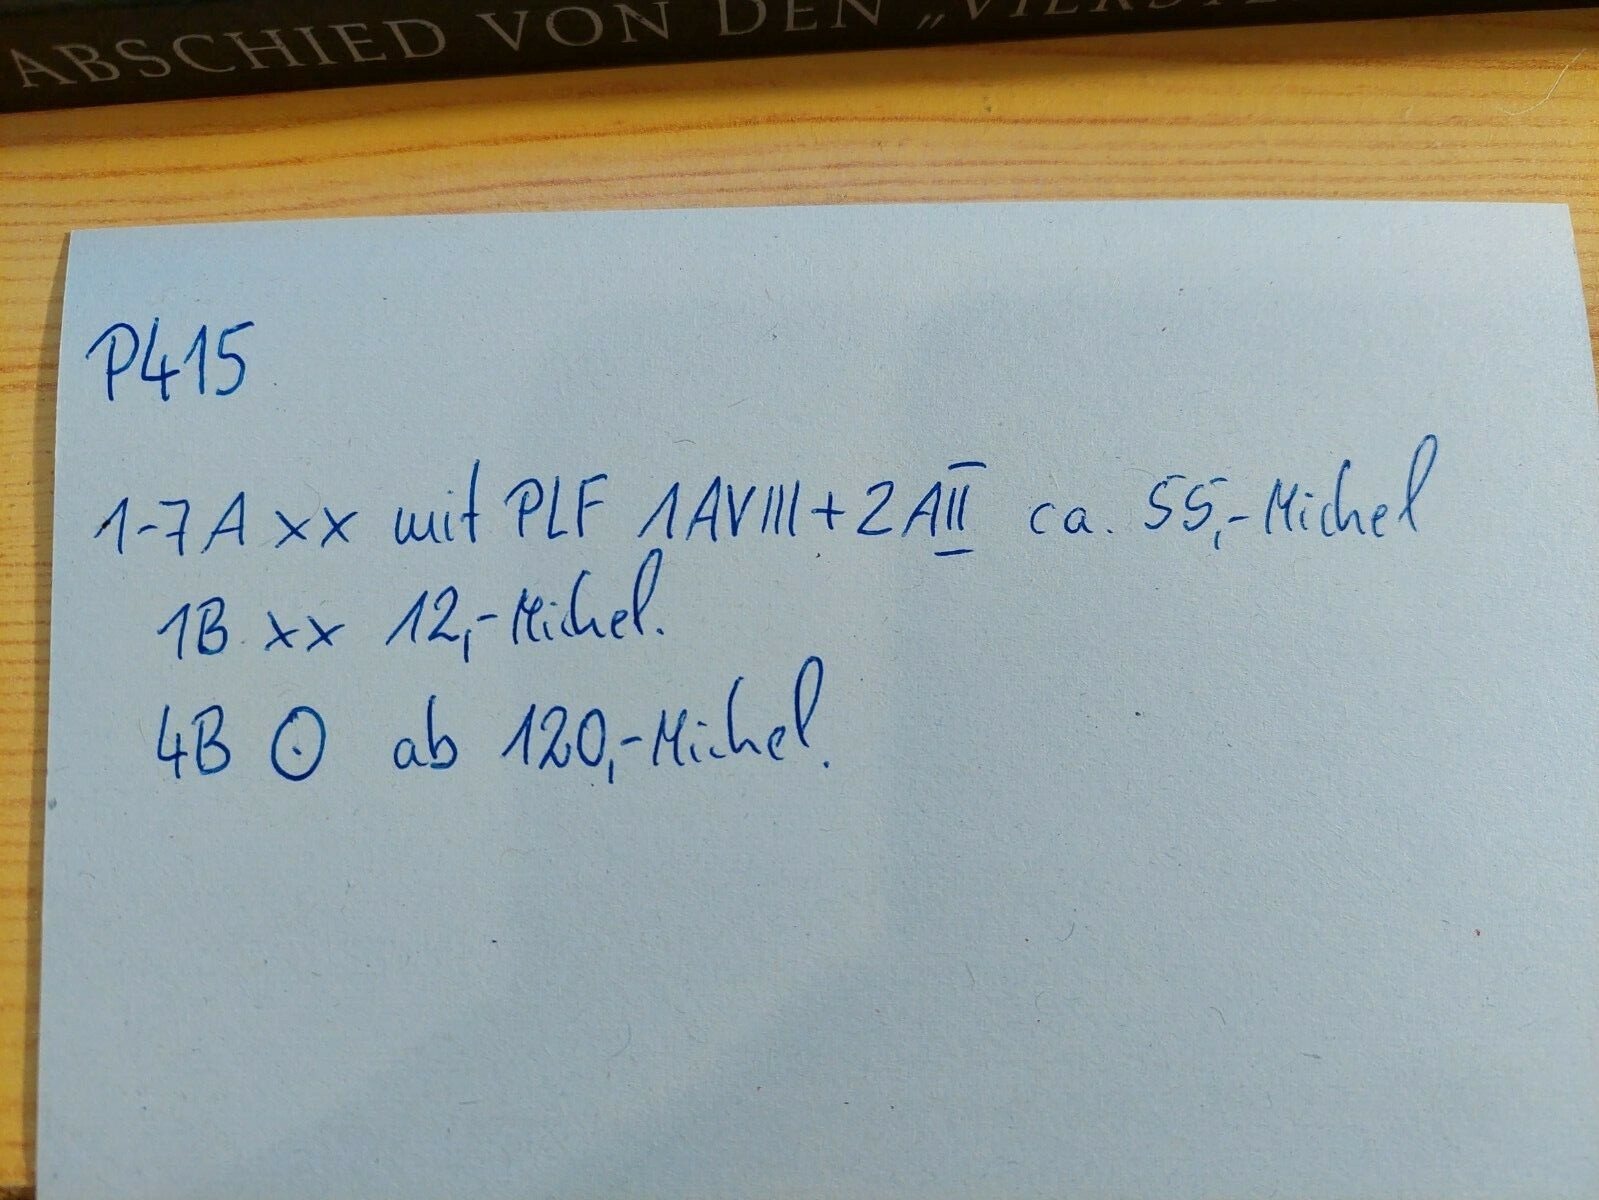 ABSCHIED VON DEN „VIERSTE
P415
1-7A xx mit PLF 1AVIII + 2AII ca. 55,- Michel
1B xx 12,- Michel.
4B ⊙ ab 120,- Michel.